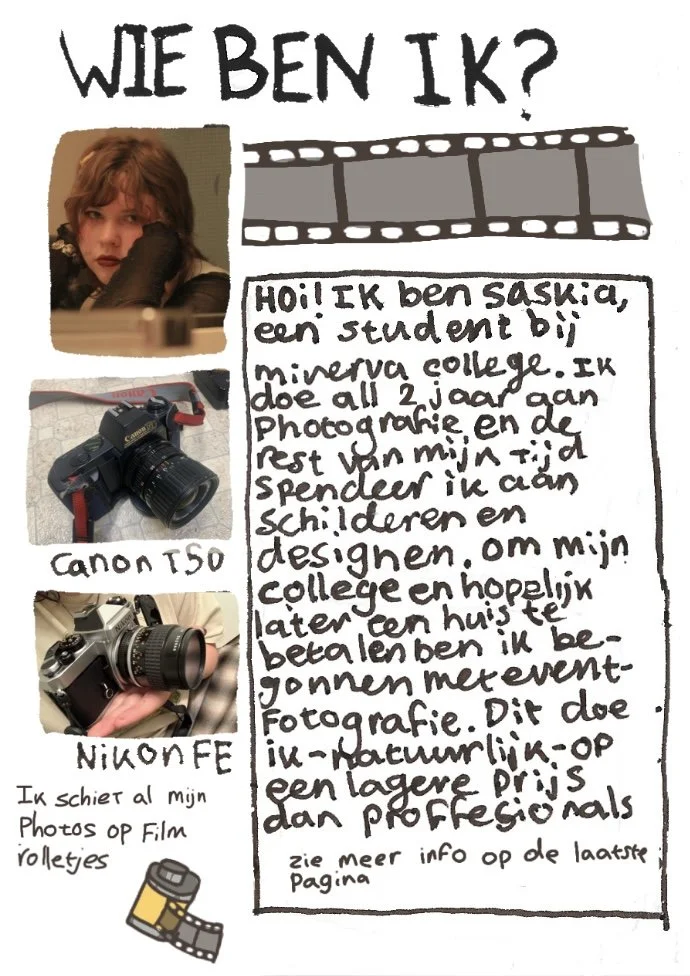 WIE BEN IK?
HOi! IK ben saskia,
een student bij
minerva college. IK
doe all 2 jaar aan
Photografie en de
rest van mijn tijd
spendeer ik aan
schilderen en
designen. om mijn
college en hopelijk
later een huis te
betalen ben ik be-
gonnen met event-
Fotografie. Dit doe
ik-natuurlijk-op
een lagere prijs
dan proffesionals
zie meer info op de laatste
pagina
Canon
Canon T50
Nikon FE
Ik schiet al mijn
Photos op Film
rolletjes